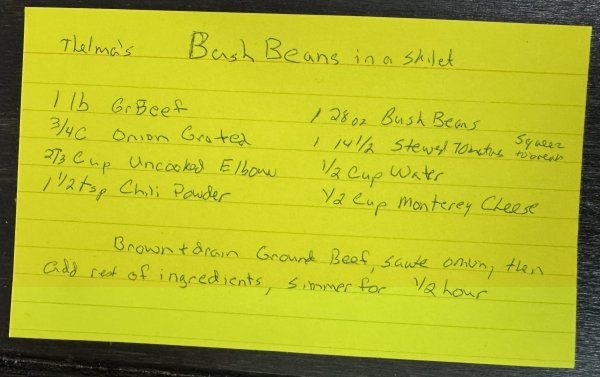 Thelma's Bush Beans in a Skilet
1 lb Gr Beef
3/4 C Onion Grated
2/3 Cup Uncooked Elbow
1 1/2 tsp Chili Powder
1 28oz Bush Beans
1 14 1/2 Stewed Tomatos Squeez to break
1/2 Cup Water
1/2 Cup Monterey Cheese
Brown + drain Ground Beef, saute onion, then
add rest of ingredients, simmer for 1/2 hour